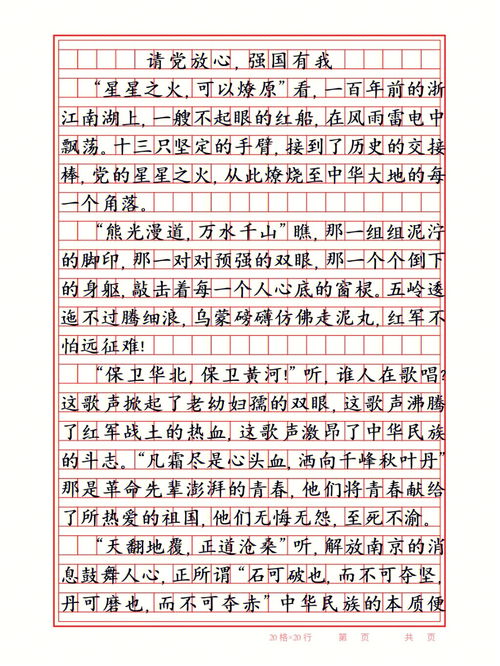 请党放心,强国有我
“星星之火,可以燎原”看,一百年前的浙
江南湖上,一艘不起眼的红船,在风雨雷电中
飘荡。十三只坚定的手臂,接到了历史的交接
棒,党的星星之火,从此燎烧至中华大地的每
一个角落。
“熊光漫道,万水千山”瞧,那一组组泥泞
的脚印,那一对对预强的双眼,那一个个倒下
的身躯,敲击着每一个人心底的窗棂。五岭逶
迤不过腾细浪,乌蒙磅礴仿佛走泥丸,红军不
怕远征难!
“保卫华北,保卫黄河!”听,谁人在歌唱?
这歌声掀起了老幼妇孺的双眼,这歌声沸腾
了红军战士的热血,这歌声激昂了中华民族
的斗志。“凡霜尽是心头血,洒向千峰秋叶丹”
那是革命先辈澎湃的青春,他们将青春献给
了所热爱的祖国,他们无悔无怨,至死不渝。
“天翻地覆,正道沧桑”听,解放南京的消
息鼓舞人心,正所谓“石可破也,而不可夺坚,
丹可磨也,而不可夺赤”中华民族的本质便
20格×20行 第 页 共 页